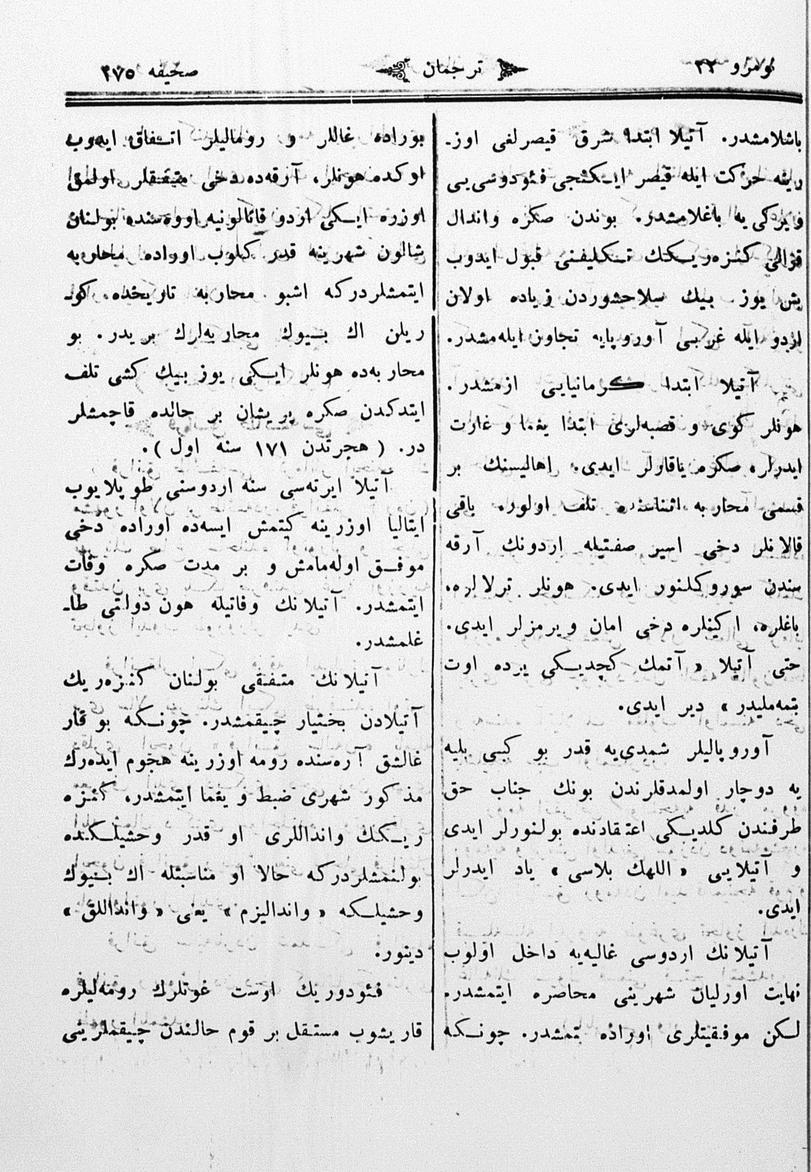 نومرو ٢٢
ترجمان
صحيفه ٢٧٥
باشلامشدر. آتيلا ابتدا شرق قيصرلغى اوز‍ـ
رينه حركت ايله قيصر ايكنجى فئودوسى‌يى
ويركى‌يه باغلامشدر. بوندن صكره واندال
قرالى كنزه‌ريكك تكليفنى قبول ايدوب
بش يوز بيك سلاحشوردن زياده اولان
اردو ايله غربى آوروپايه تجاوز ايله‌مشدر.
آتيلا ابتدا كرمانيايى ازمشدر.
هونلر كوى و قصبه‌لرى ابتدا يغما و غارت
ايدرلر، صكره ياقارلر ايدى. اهاليسنك بر
قسمى محاربه اثناسنده تلف اولور، باقى
قالانلر دخى اسير صفتيله اردونك آرقه
سندن سوروكلنور ايدى. هونلر ترلالره،
باغلره، اكنلره دخى امان ويرمزلر ايدى.
حتى آتيلا «آتمك كچديكى يرده اوت
بتمه‌مليدر» دير ايدى.
آوروپاليلر شمدى‌يه قدر بو كبى بليه
يه دوچار اولمدقلرندن بونك جناب حق
طرفندن كلديكى اعتقادنده بولنورلر ايدى
و آتيلايى «اللهك بلاسى» ياد ايدرلر
ايدى.
آتيلانك اردوسى غاليه‌يه داخل اولوب
نهايت اورليان شهرينى محاصره ايتمشدر.
لكن موفقيتلرى اوراده بتمشدر. چونكه
بوراده غاللر و روماليلر اتفاق ايدوب
اوكده هونلر، آرقه‌ده دخى متفقلر اولمق
اوزره ايكى اردو قاتالونيه اووه‌سنده بولنان
شالون شهرينه قدر كلوب اوراده محاربه
ايتمشلردركه اشبو محاربه تاريخده كو‍ـ
ريلن اك بيوك محاربه‌لرك بريدر. بو
محاربه‌ده هونلر ايكى يوز بيك كشى تلف
ايتدكدن صكره پريشان بر حالده قاچمشلر
در. (هجرتدن ١٧١ سنه اول).
آتيلا ايرته‌سى سنه اردوسنى طوپلايوب
ايتاليا اوزرينه كيتمش ايسه‌ده اوراده دخى
موفق اوله‌مامش و بر مدت صكره وفات
ايتمشدر. آتيلانك وفاتيله هون دولتى طا‍ـ
غلمشدر.
آتيلانك متفقى بولنان كنزه‌ريك
آتيلادن بختيار چيقمشدر. چونكه بو قار
غالشق آره‌سنده رومه اوزرينه هجوم ايده‌رك
مذكور شهرى ضبط و يغما ايتمشدر. كنزه
ريكك وانداللرى او قدر وحشيلكده
بولنمشلردركه حالا او مناسبتله اك بيوك
وحشيلكه «واندالیزم» يعنى «وانداللق»
دينور.
فئودوريك اوست غوتلرك رومه‌ليلره
قاريشوب مستقل بر قوم حالندن چيقملرينى